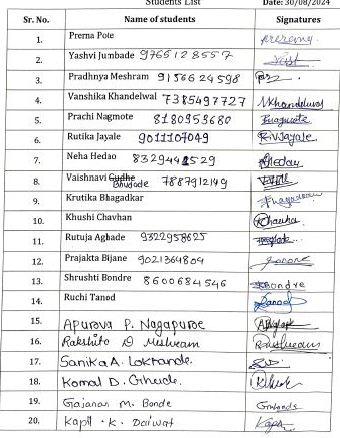 Students List Date: 30/08/2024
Sr. No. Name of students Signatures
1. Prerna Pote
2. Yashvi Jumbade 9765128557
3. Pradhnya Meshram 9156624598
4. Vanshika Khandelwal 7385497727 VKhandelwal
5. Prachi Nagmote 8180959680
6. Rutika Jayale 9011107049 R.V.Jayale
7. Neha Hedao 8329441529
8. Vaishnavi Gudhe
Bhudade 7887912149
9. Krutika Bhagadkar
10. Khushi Chavhan
11. Rutuja Aghade 9322958625
12. Prajakta Bijane 9021364804
13. Shrushti Bondre 8600684546 Bondre
14. Ruchi Tanod
15. Apurava P. Nagapuroe
16. Rakshita D Meshram
17. Sanika A. Lokhande
18. Komal D. Ghude
19. Gajanan M. Bonde
20. Kapil . K. Daiwat